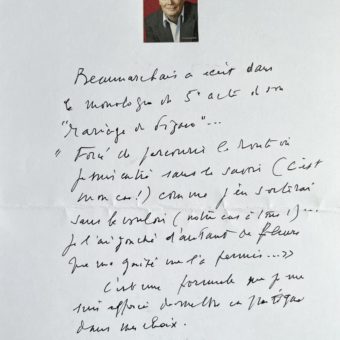 Beaumarchais a écrit dans
le monologue du 5e acte de son
"Mariage de Figaro"...
"Forcé de parcourir la route où
je suis entré sans le savoir (c'est
mon cas!) comme j'en sortirai
sans le vouloir (notre cas à tous!)...
je l'ai jonchée d'autant de fleurs
que ma gaieté me l'a permis...»
C'est une formule que je me
suis efforcé de mettre en pratique
dans mes choix.